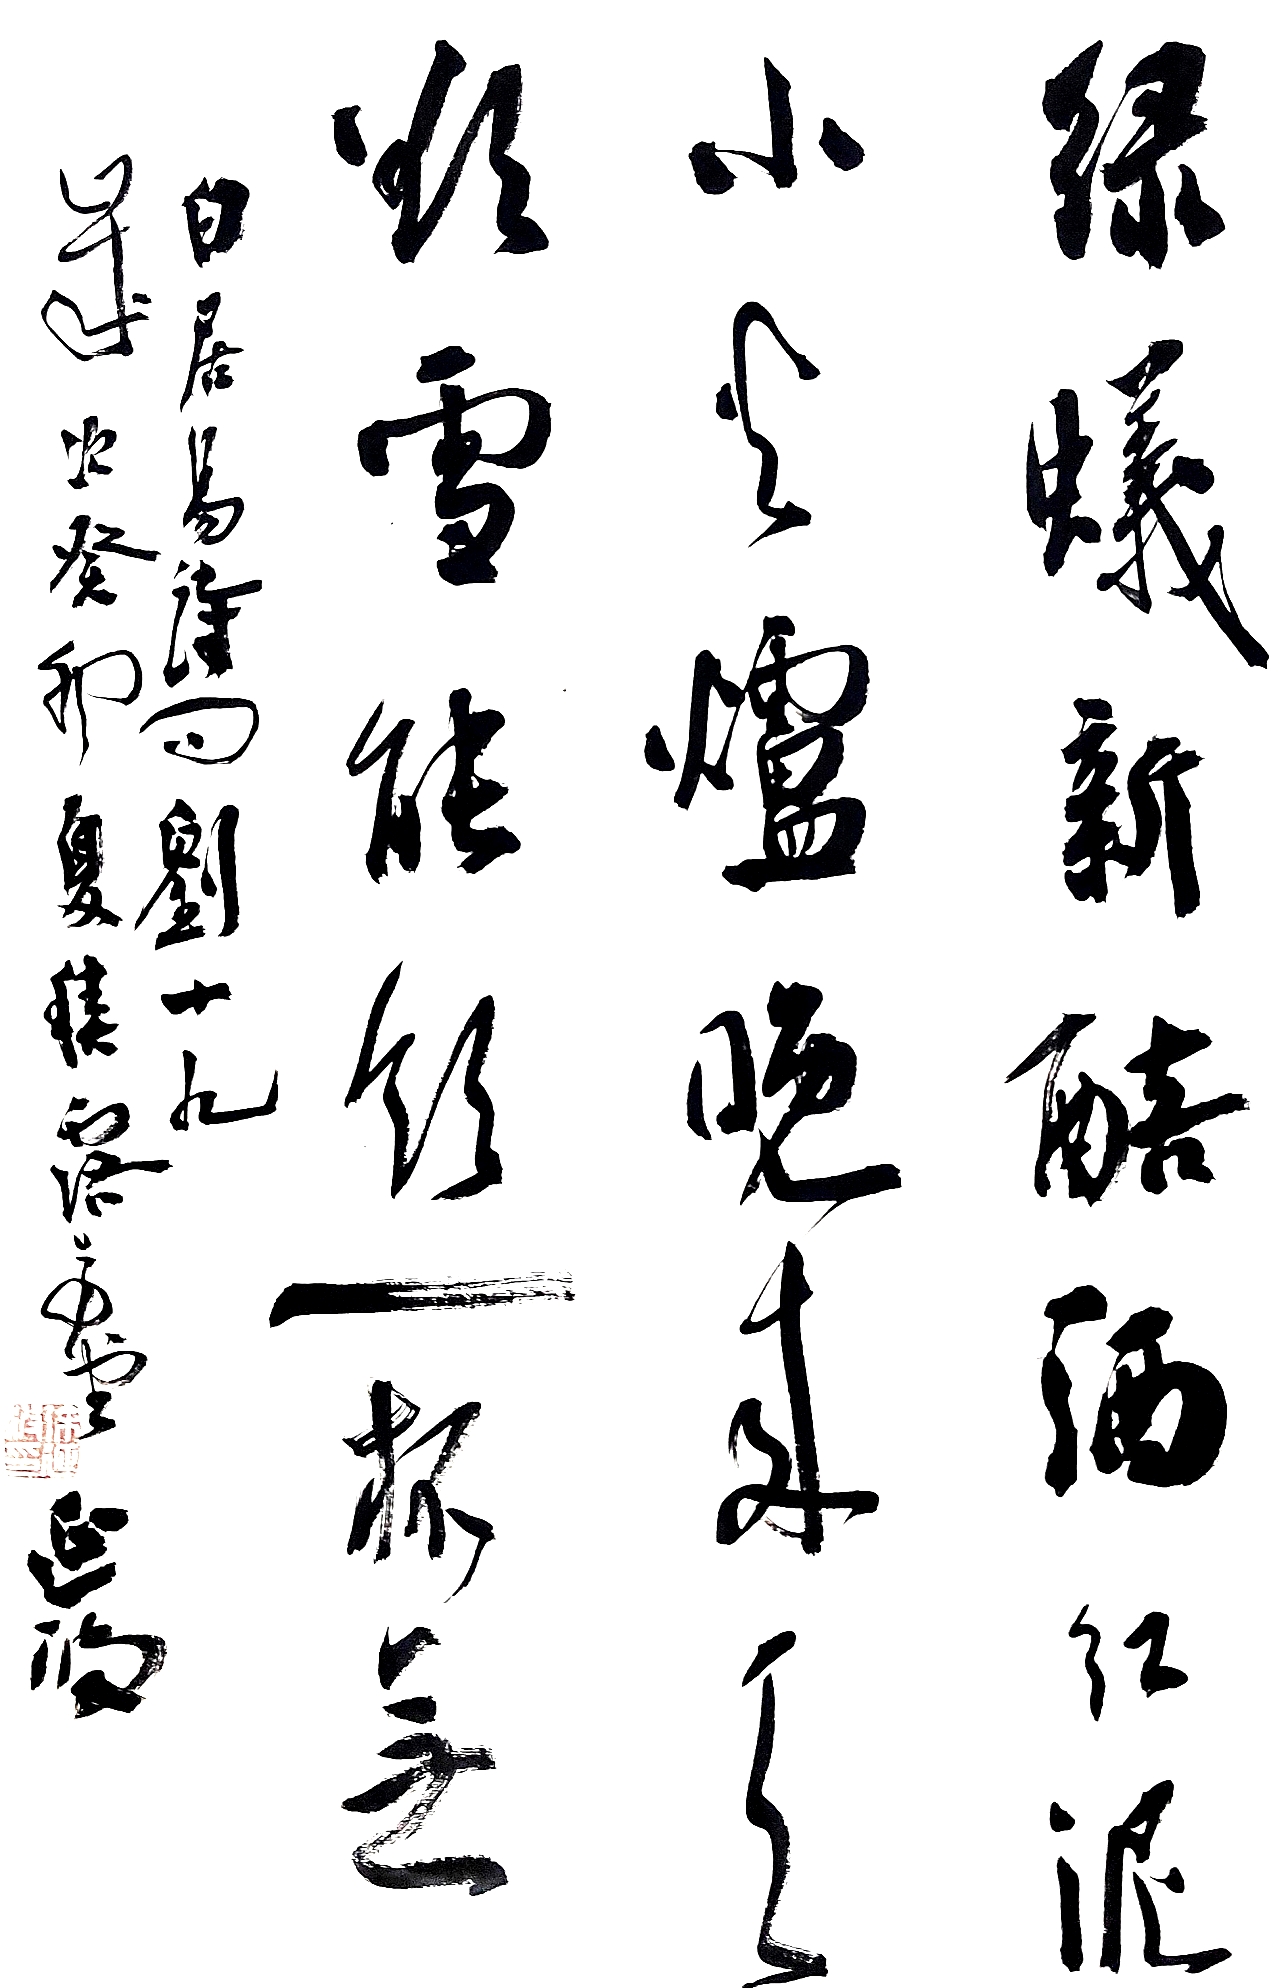 綠蟻新醅酒紅泥
小火爐晚來天
欲雪能飲一杯無
白居易詩問劉十九
歲次癸卯夏